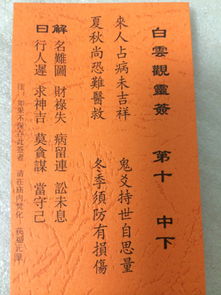 白雲觀靈簽 第十 中下
來人占病未吉祥 鬼爻持世自思量
夏秋尚恐難醫救 冬季須防有損傷
解曰
名難圖 財祿失 病留連 訟未息
行人遲 求神吉 莫貪謀 當守己